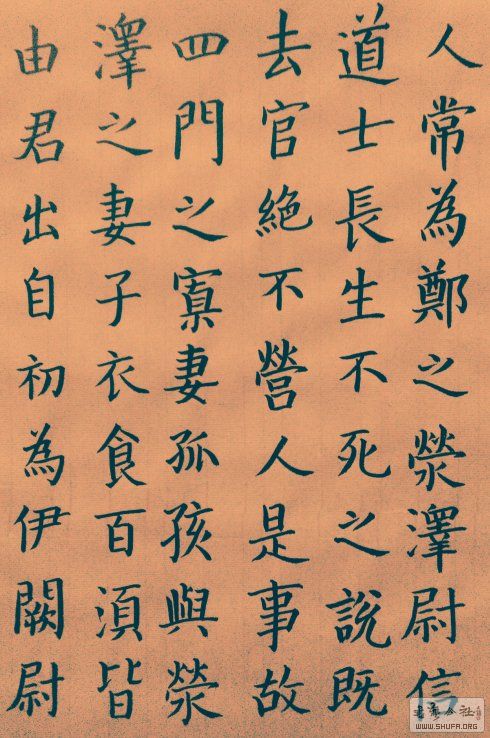 人常為鄭之滎澤尉信
道士長生不死之說既
去官絕不營人是事故
四門之寡妻孤孩與滎
澤之妻子衣食百須皆
由君出自初為伊闕尉
WWW.SHUFA.ORG